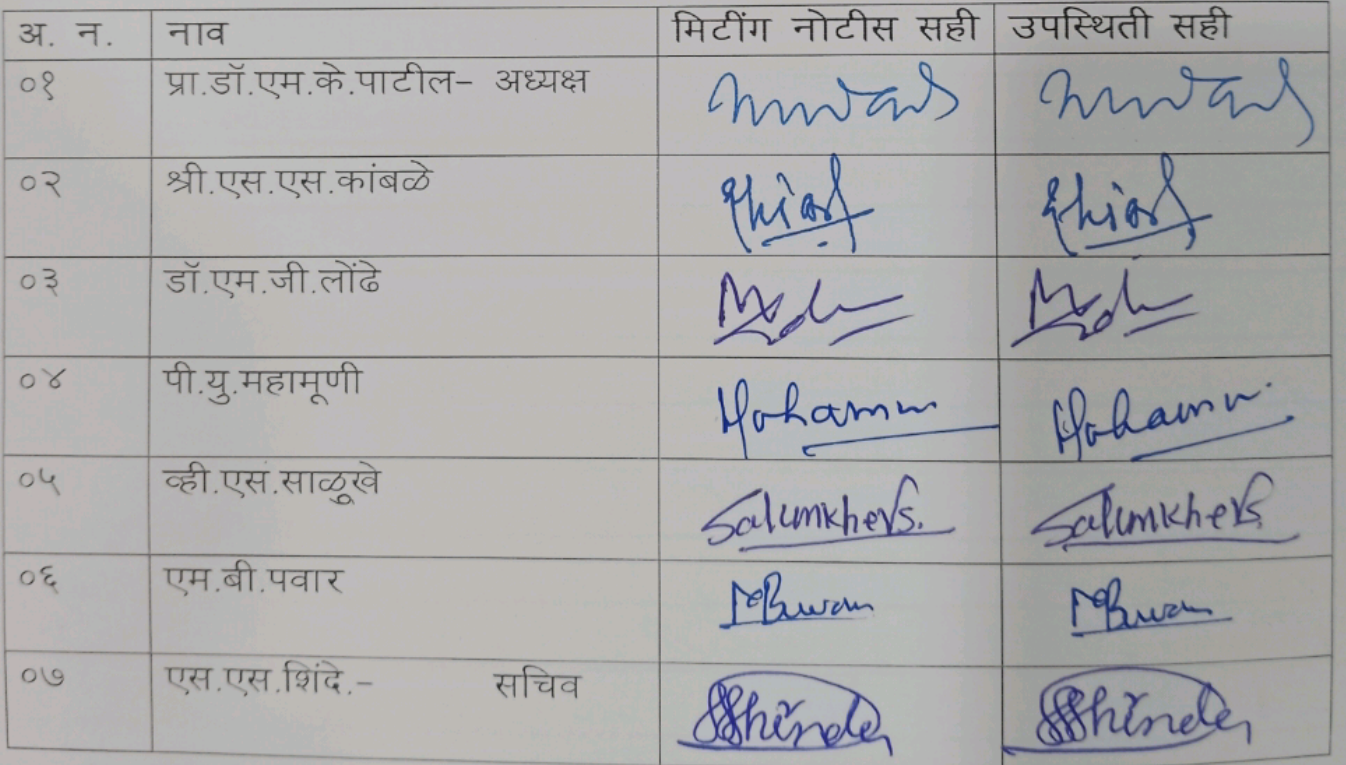 अ. न. नाव मिटींग नोटीस सही उपस्थिती सही
०१ प्रा.डॉ.एम.के.पाटील- अध्यक्ष
०२ श्री.एस.एस.कांबळे
०३ डॉ.एम.जी.लोंढे
०४ पी.यु.महामूणी
०५ व्ही.एस.साळुखे Salunkhe VS. Salunkhe VS.
०६ एम.बी.पवार
०७ एस.एस.शिंदे.- सचिव SShinde SShinde